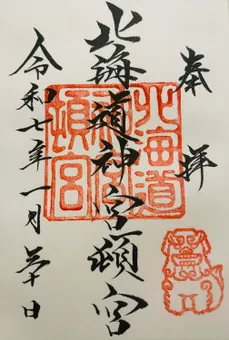 奉拝
北海道神宮頓宮
令和七年一月 十日
北海道
神宮
頓宮